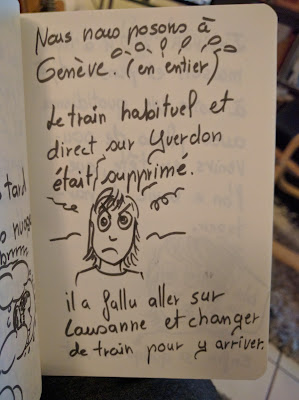 Nous nous posons à
Genève. (en entier)
Le train habituel et
direct sur Yverdon
était supprimé.
il a fallu aller sur
Lausanne et changer
de train pour y arriver.